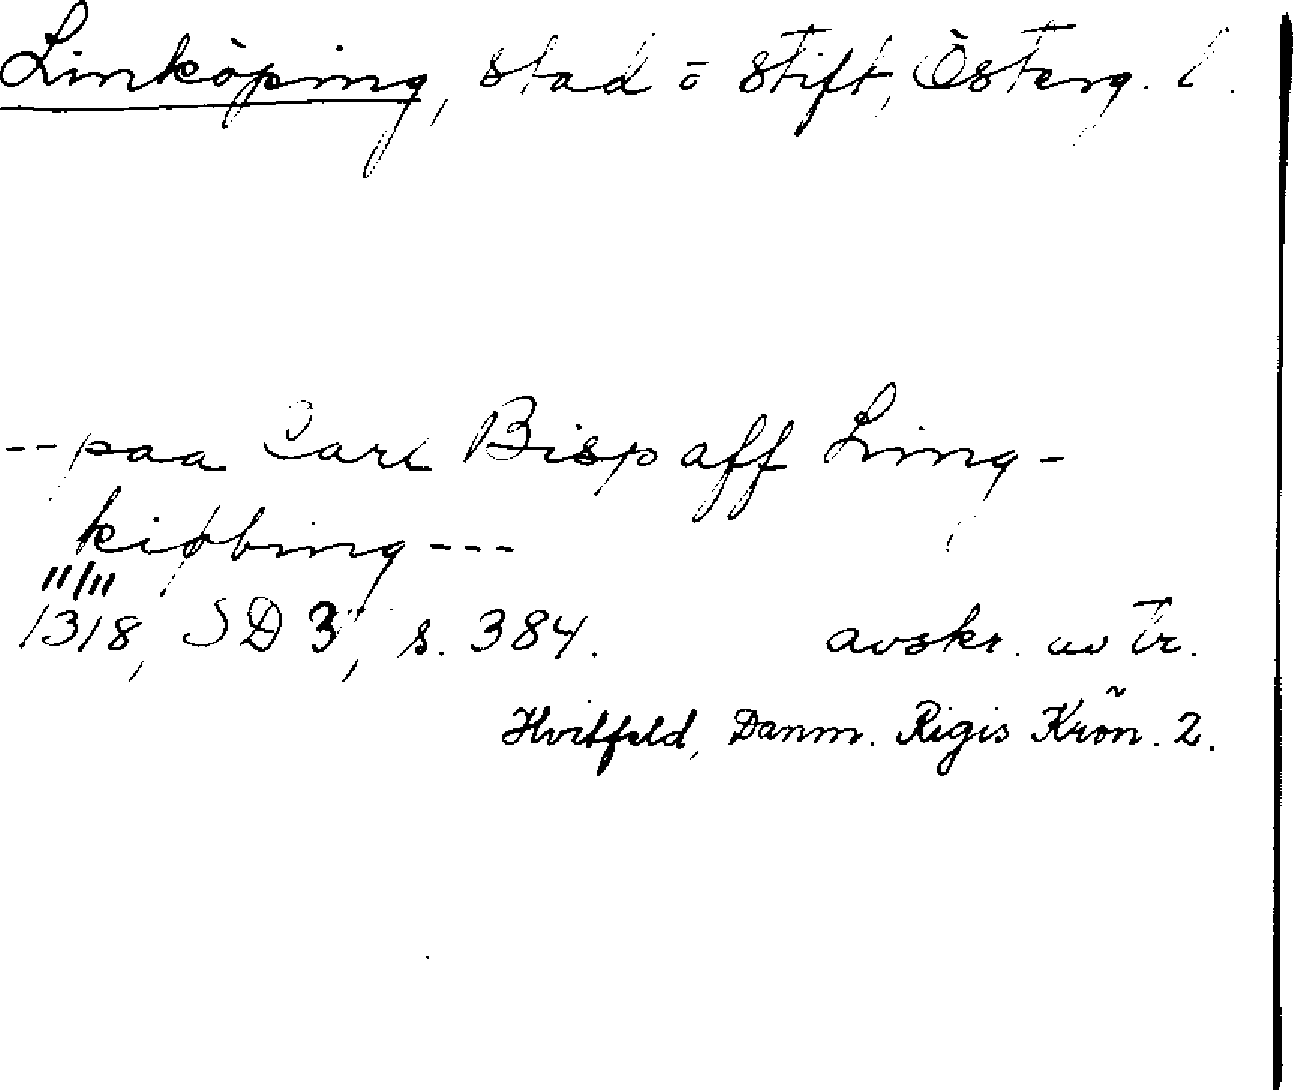 Linköping, stad o stift, Österg. l.
--paa Carl Bisp aff Ling-
kiøbing---
11/11
1318, SD 3, s. 384. avskr. av tr.
Hvitfeld, Danm. Rigis Krön. 2.